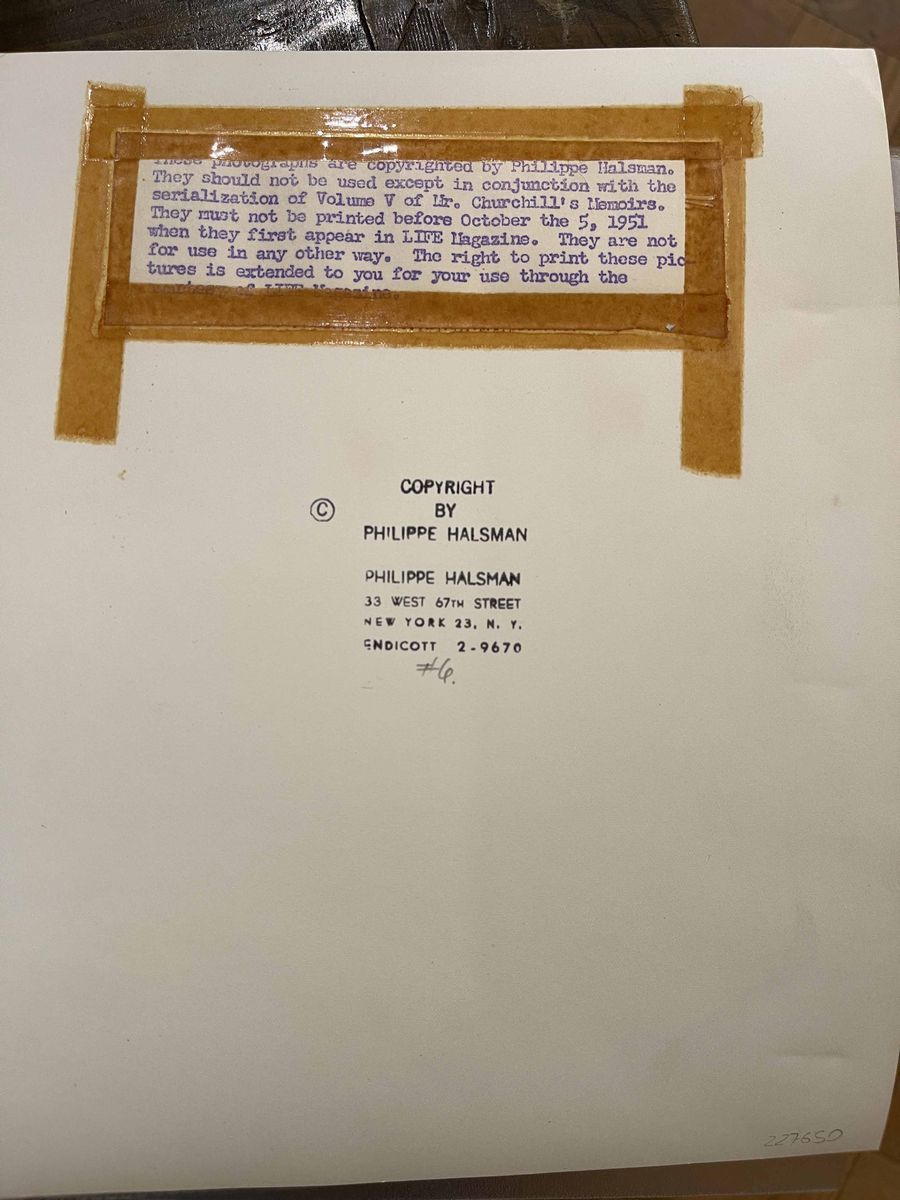 These photographs are copyrighted by Philippe Halsman.
They should not be used except in conjunction with the
serialization of Volume V of Mr. Churchill's Memoirs.
They must not be printed before October the 5, 1951
when they first appear in LIFE Magazine. They are not
for use in any other way. The right to print these pic-
tures is extended to you for your use through the
courtesy of LIFE Magazine.
COPYRIGHT
© BY
PHILIPPE HALSMAN
PHILIPPE HALSMAN
33 WEST 67TH STREET
NEW YORK 23, N. Y.
ENDICOTT 2-9670
#6.
227650